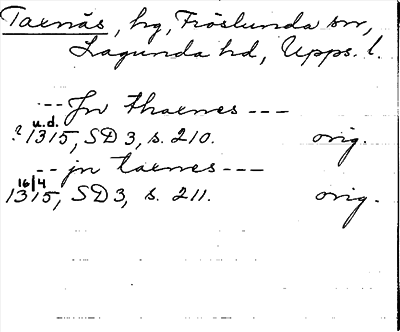 Taxnäs, hg, Fröslunda sn,
Lagunda hd, Upps. l.
--- Jn thaxnes ---
u.d.
? 1315, SD 3, s. 210. orig.
--- jn taxnes ---
16/4
1315, SD 3, s. 211. orig.